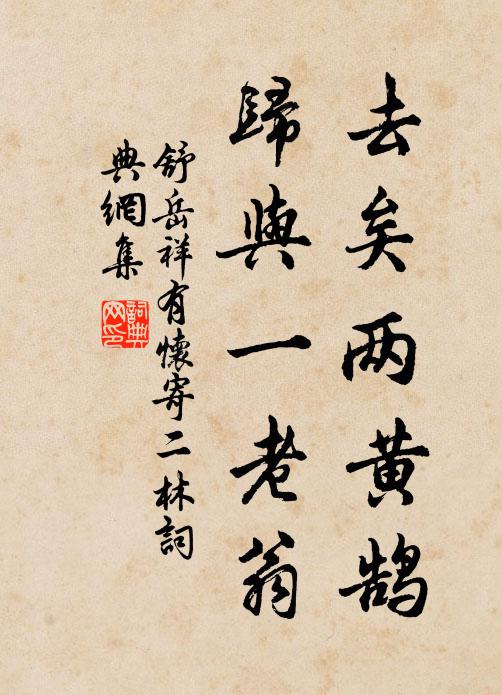 去矣两黄鹄
歸與一老翁
舒岳祥有懷寄二林詞
典網集
詞典网印